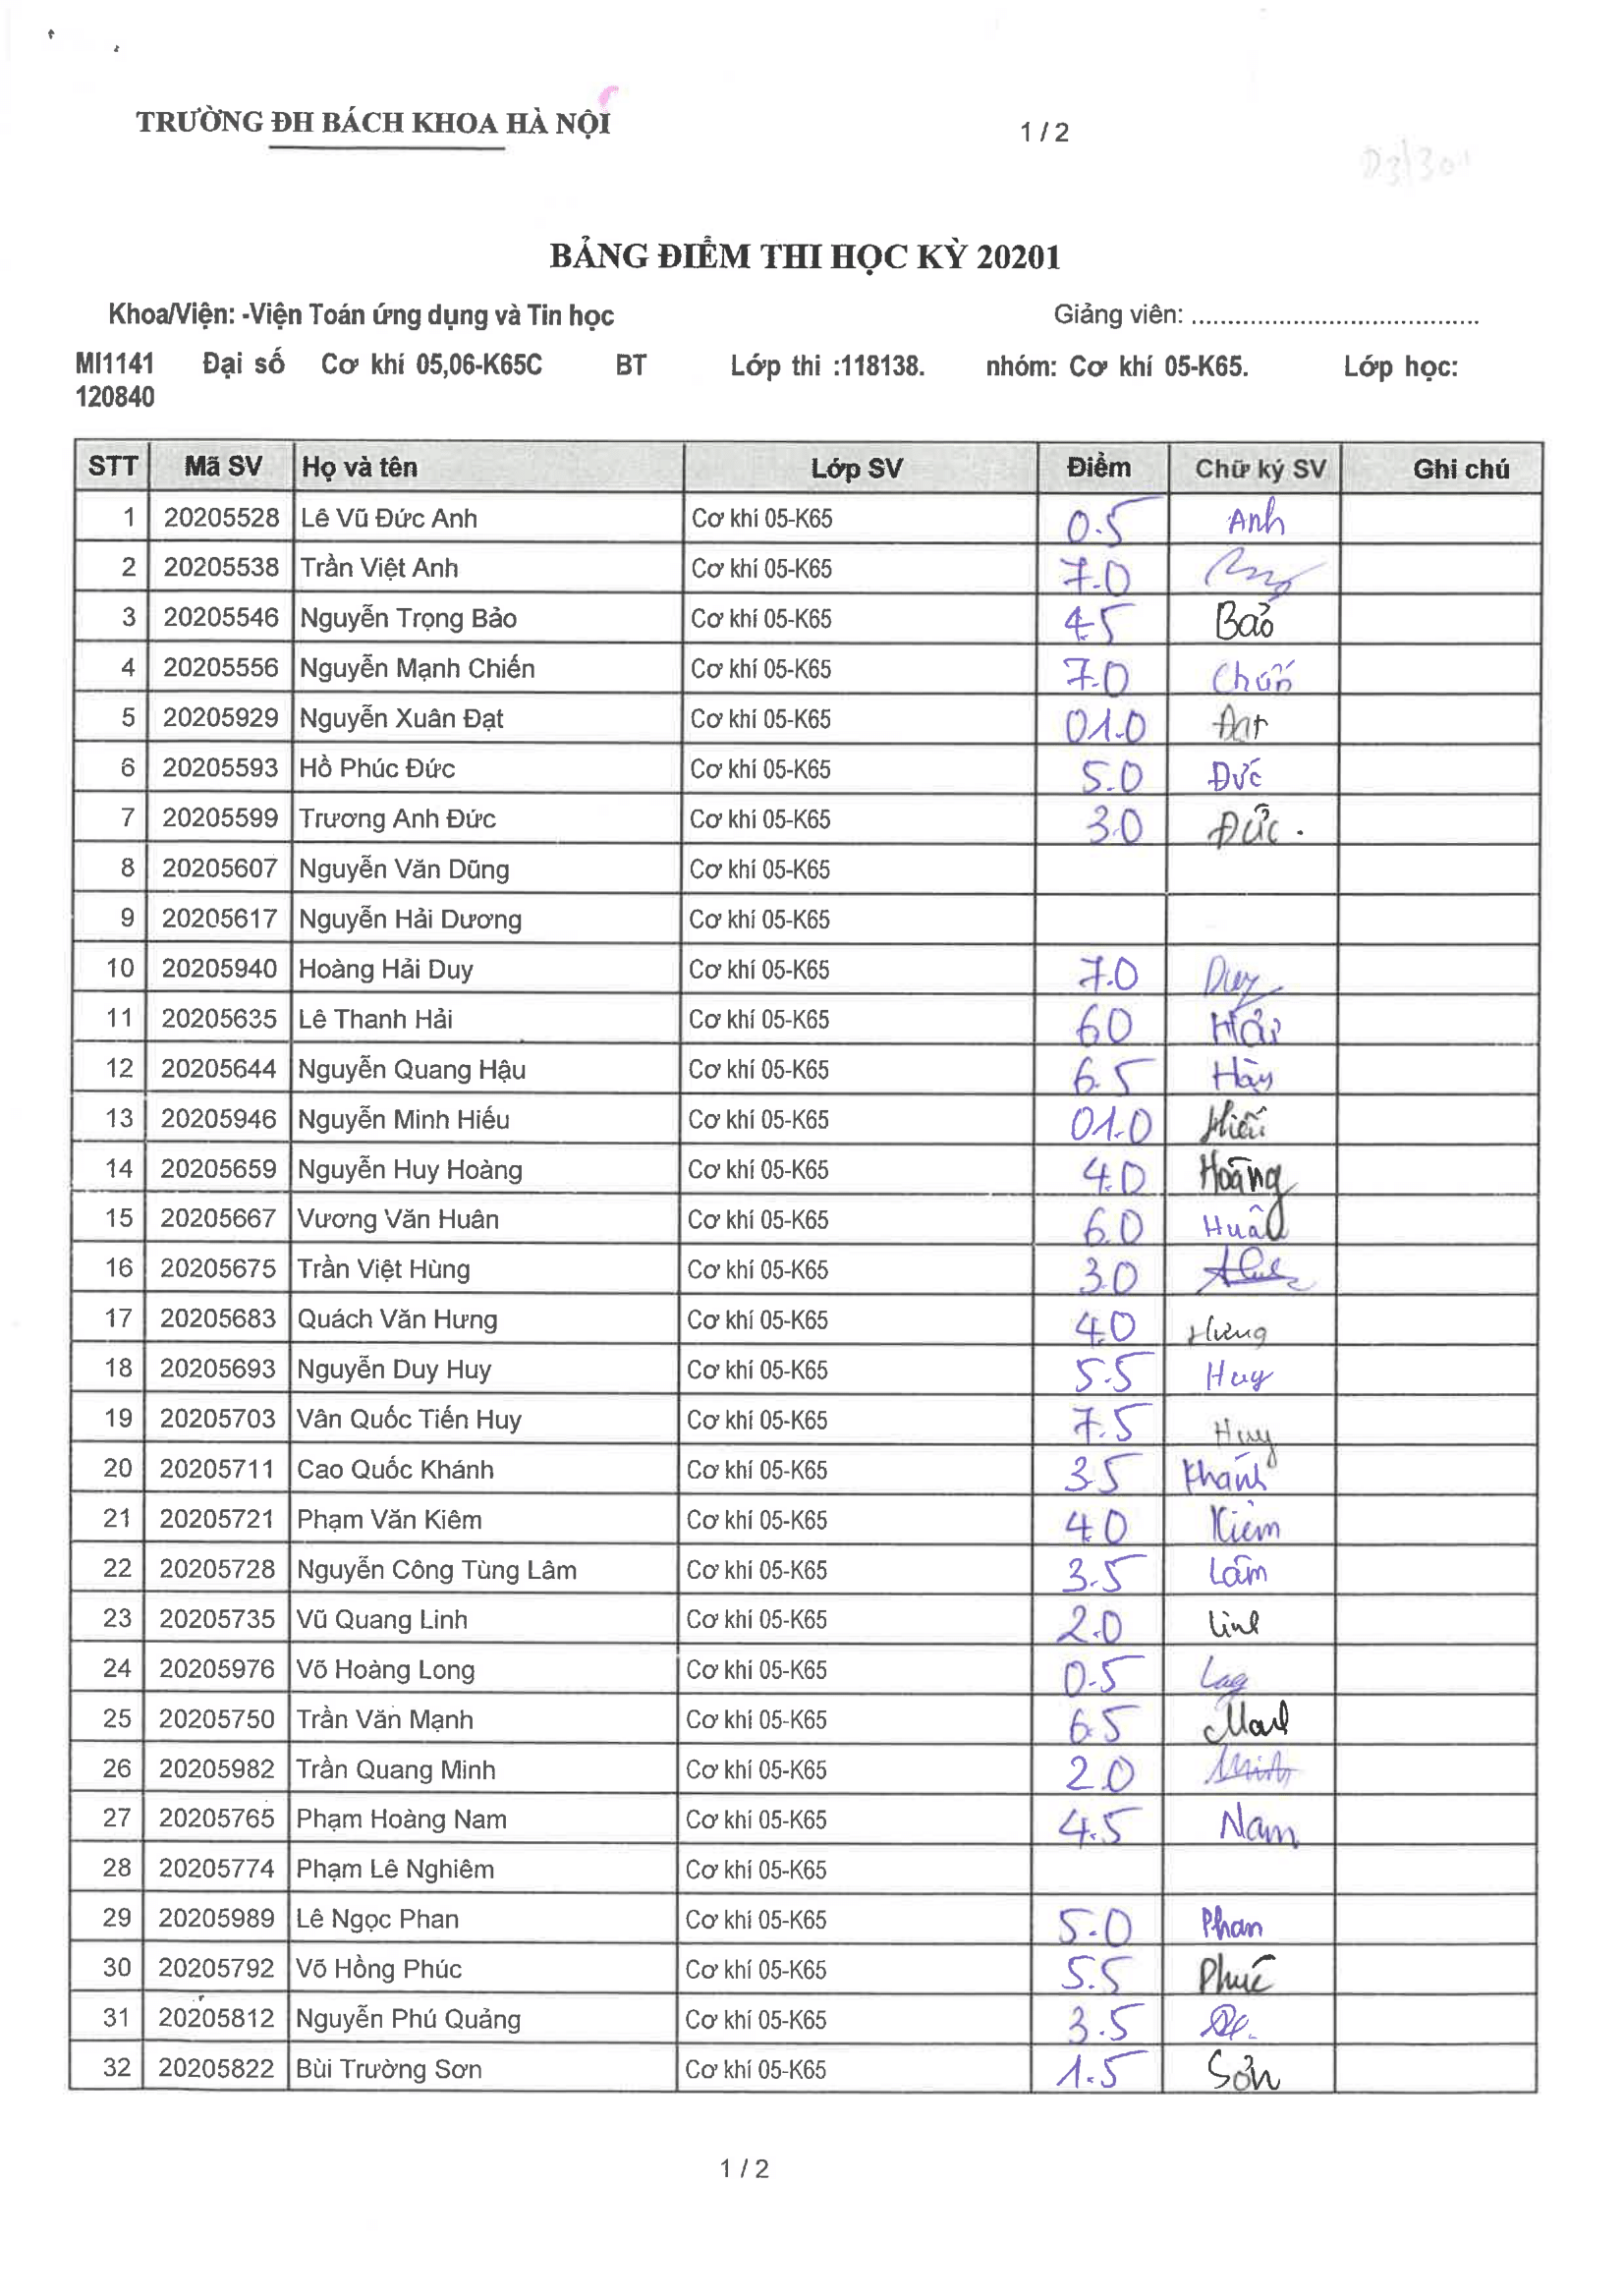 TRƯỜNG ĐH BÁCH KHOA HÀ NỘI 1 / 2
BẢNG ĐIỂM THI HỌC KỲ 20201
Khoa/Viện: -Viện Toán ứng dụng và Tin học Giảng viên: ......................................
MI1141 Đại số Cơ khí 05,06-K65C BT Lớp thi :118138. nhóm: Cơ khí 05-K65. Lớp học:
120840
STT Mã SV Họ và tên Lớp SV Điểm Chữ ký SV Ghi chú
1 20205528 Lê Vũ Đức Anh Cơ khí 05-K65 0.5 Anh
2 20205538 Trần Việt Anh Cơ khí 05-K65 7.0
3 20205546 Nguyễn Trọng Bảo Cơ khí 05-K65 4.5 Bảo
4 20205556 Nguyễn Mạnh Chiến Cơ khí 05-K65 7.0 Chiến
5 20205929 Nguyễn Xuân Đạt Cơ khí 05-K65 01.0 Đạt
6 20205593 Hồ Phúc Đức Cơ khí 05-K65 5.0 Đức
7 20205599 Trương Anh Đức Cơ khí 05-K65 3.0 Đức.
8 20205607 Nguyễn Văn Dũng Cơ khí 05-K65
9 20205617 Nguyễn Hải Dương Cơ khí 05-K65
10 20205940 Hoàng Hải Duy Cơ khí 05-K65 7.0 Duy
11 20205635 Lê Thanh Hải Cơ khí 05-K65 6.0 Hải
12 20205644 Nguyễn Quang Hậu Cơ khí 05-K65 6.5 Hậu
13 20205946 Nguyễn Minh Hiếu Cơ khí 05-K65 01.0 Hiếu
14 20205659 Nguyễn Huy Hoàng Cơ khí 05-K65 4.0 Hoàng
15 20205667 Vương Văn Huân Cơ khí 05-K65 6.0 Huân
16 20205675 Trần Việt Hùng Cơ khí 05-K65 3.0
17 20205683 Quách Văn Hưng Cơ khí 05-K65 4.0 Hưng
18 20205693 Nguyễn Duy Huy Cơ khí 05-K65 5.5 Huy
19 20205703 Vân Quốc Tiến Huy Cơ khí 05-K65 7.5 Huy
20 20205711 Cao Quốc Khánh Cơ khí 05-K65 3.5 Khánh
21 20205721 Phạm Văn Kiêm Cơ khí 05-K65 4.0 Kiêm
22 20205728 Nguyễn Công Tùng Lâm Cơ khí 05-K65 3.5 Lâm
23 20205735 Vũ Quang Linh Cơ khí 05-K65 2.0 Linh
24 20205976 Võ Hoàng Long Cơ khí 05-K65 0.5 Long
25 20205750 Trần Văn Mạnh Cơ khí 05-K65 6.5 Manh
26 20205982 Trần Quang Minh Cơ khí 05-K65 2.0 Minh
27 20205765 Phạm Hoàng Nam Cơ khí 05-K65 4.5 Nam
28 20205774 Phạm Lê Nghiêm Cơ khí 05-K65
29 20205989 Lê Ngọc Phan Cơ khí 05-K65 5.0 Phan
30 20205792 Võ Hồng Phúc Cơ khí 05-K65 5.5 Phúc
31 20205812 Nguyễn Phú Quảng Cơ khí 05-K65 3.5
32 20205822 Bùi Trường Sơn Cơ khí 05-K65 1.5 Sơn
1 / 2